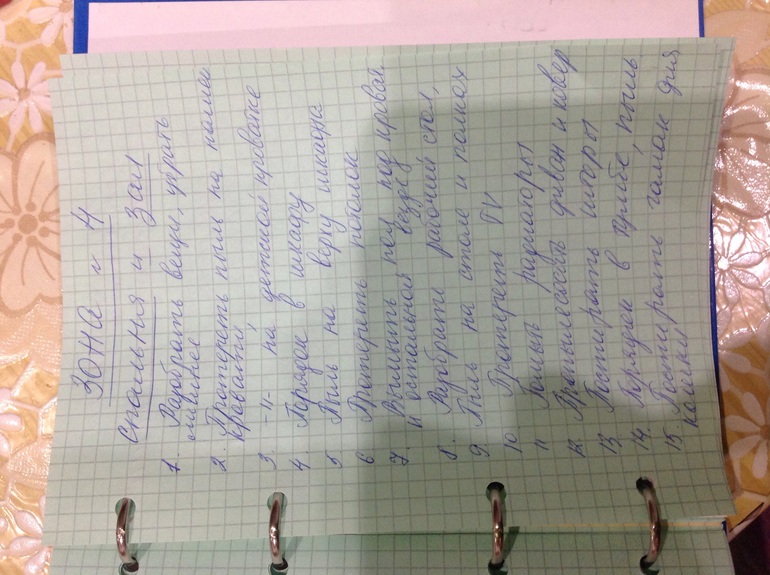 ЗОНА № 4
спальня и зал
1. Разобрать вещи, убрать
лишнее
2. Протереть пыль на полке
кровати
3. -//- на детской кроватке
4. Порядок в шкафу
5 Пыль на верху шкафа
6 Протереть потолок
7. Вымыть пол под кроват.
и остальной везде
8. Разобрать рабочий стол,
9. Пыль на столе и полках
10. Протереть TV
11 Помыть радиаторы
12 Пропылесосить диван и ковер
13. Постирать шторы
14. Порядок в тумбе, пыль
15. Постирать гамак для
кошки